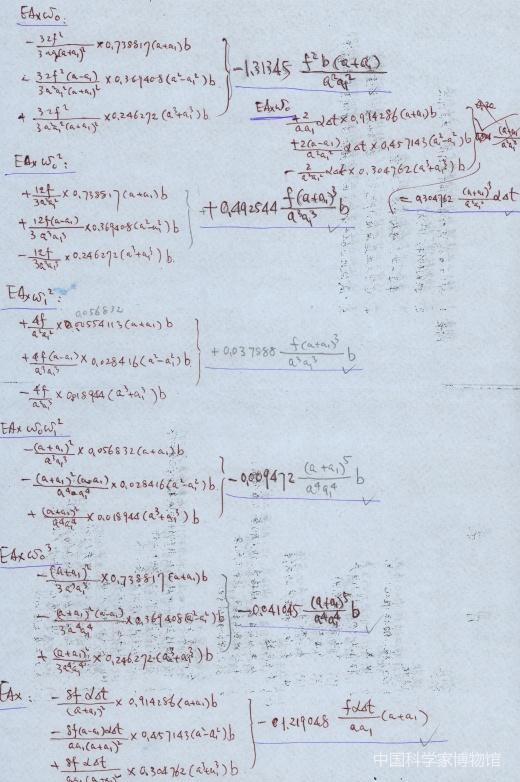 EA×ω₀:
-32f²/3a₁a(a+a₁)² × 0.738817(a+a₁)b
+32f²(a-a₁)/3a²a₁²(a+a₁)² × 0.369408(a²-a₁²)b
+32f²/3a²a₁²(a+a₁)² × 0.246272(a³+a₁³)b
-1.31345 f²b(a+a₁)/a²a₁²
EA×ω₀
+2/aa₁ αΔt × 0.914286(a+a₁)b
+2(a-a₁)/a²a₁² αΔt × 0.457143(a²-a₁²)b
-2/a²a₁² αΔt × 0.304762(a³+a₁³)b
= 0.304762 (a+a₁)³/a²a₁² αΔt
EA×ω₀²:
+12f/3a²a₁² × 0.738817(a+a₁)b
+12f(a-a₁)/3a³a₁³ × 0.369408(a²-a₁²)b
-12f/3a³a₁³ × 0.246272(a³+a₁³)b
+0.492544 f(a+a₁)³/a³a₁³ b
EA×ω₁²:
0.056832
+4f/a²a₁² × (a+a₁)b
+4f(a-a₁)/a³a₁³ × 0.028416(a²-a₁²)b
-4f/a³a₁³ × 0.018944(a³+a₁³)b
+0.037888 f(a+a₁)³/a³a₁³ b
EA×ω₀ω₁²
-(a+a₁)²/a³a₁³ × 0.056832(a+a₁)b
-(a+a₁)²(a-a₁)/a⁴a₁⁴ × 0.028416(a²-a₁²)b
+(a+a₁)²/a⁴a₁⁴ × 0.018944(a³+a₁³)b
-0.009472 (a+a₁)⁵/a⁴a₁⁴ b
EA×ω₀³
-(a+a₁)²/3a³a₁³ × 0.738817(a+a₁)b
-(a+a₁)²(a-a₁)/3a⁴a₁⁴ × 0.369408(a²-a₁²)b
+(a+a₁)²/3a⁴a₁⁴ × 0.246272(a³+a₁³)b
-0.041045 (a+a₁)⁵/a⁴a₁⁴ b
EA×:
-8fαΔt/(a+a₁)² × 0.914286(a+a₁)b
-8f(a-a₁)αΔt/aa₁(a+a₁)² × 0.457143(a²-a₁²)b
+8fαΔt/aa₁(a+a₁)² × 0.304762(a³+a₁³)b
-1.219048 fαΔt/aa₁ (a+a₁)
中国科学家博物馆